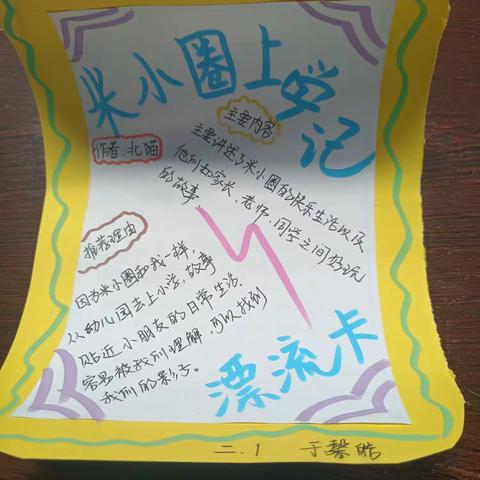 米小圈上学记
作者：北猫
主要内容
主要讲述了米小圈的快乐生活以及
他们和家长、老师、同学之间好玩
的故事
推荐理由
因为米小圈和我一样，
从幼儿园去上小学，故事
贴近小朋友的日常生活，
容易被我们理解，可以找到
我们的影子。
漂流卡
二.1 于馨皓